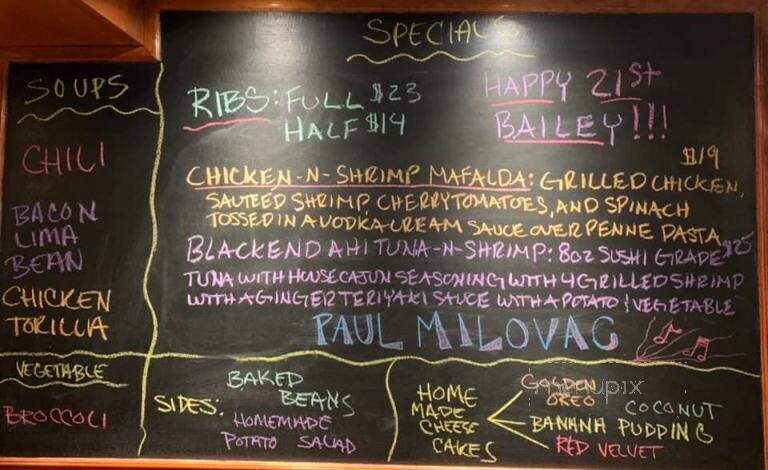 SPECIALS
SOUPS
CHILI
BACON
LIMA
BEAN
CHICKEN
TORILLA
VEGETABLE
BROCCOLI
RIBS: FULL $23
HALF $14
HAPPY 21ST
BAILEY!!!
$19
CHICKEN-N-SHRIMP MAFALDA: GRILLED CHICKEN,
SAUTEED SHRIMP, CHERRY TOMATOES, AND SPINACH
TOSSED IN A VODKA CREAM SAUCE OVER PENNE PASTA
BLACKEND AHI TUNA-N-SHRIMP: 8OZ SUSHI GRADE $25
TUNA WITH HOUSE CAJUN SEASONING WITH 4 GRILLED SHRIMP
WITH A GINGER TERIYAKI SAUCE WITH A POTATO & VEGETABLE
PAUL MILOVAC
SIDES:
BAKED
BEANS
HOMEMADE
POTATO SALAD
HOME
MADE
CHEESE
CAKES
GOLDEN
OREO
COCONUT
BANANA PUDDING
RED VELVET